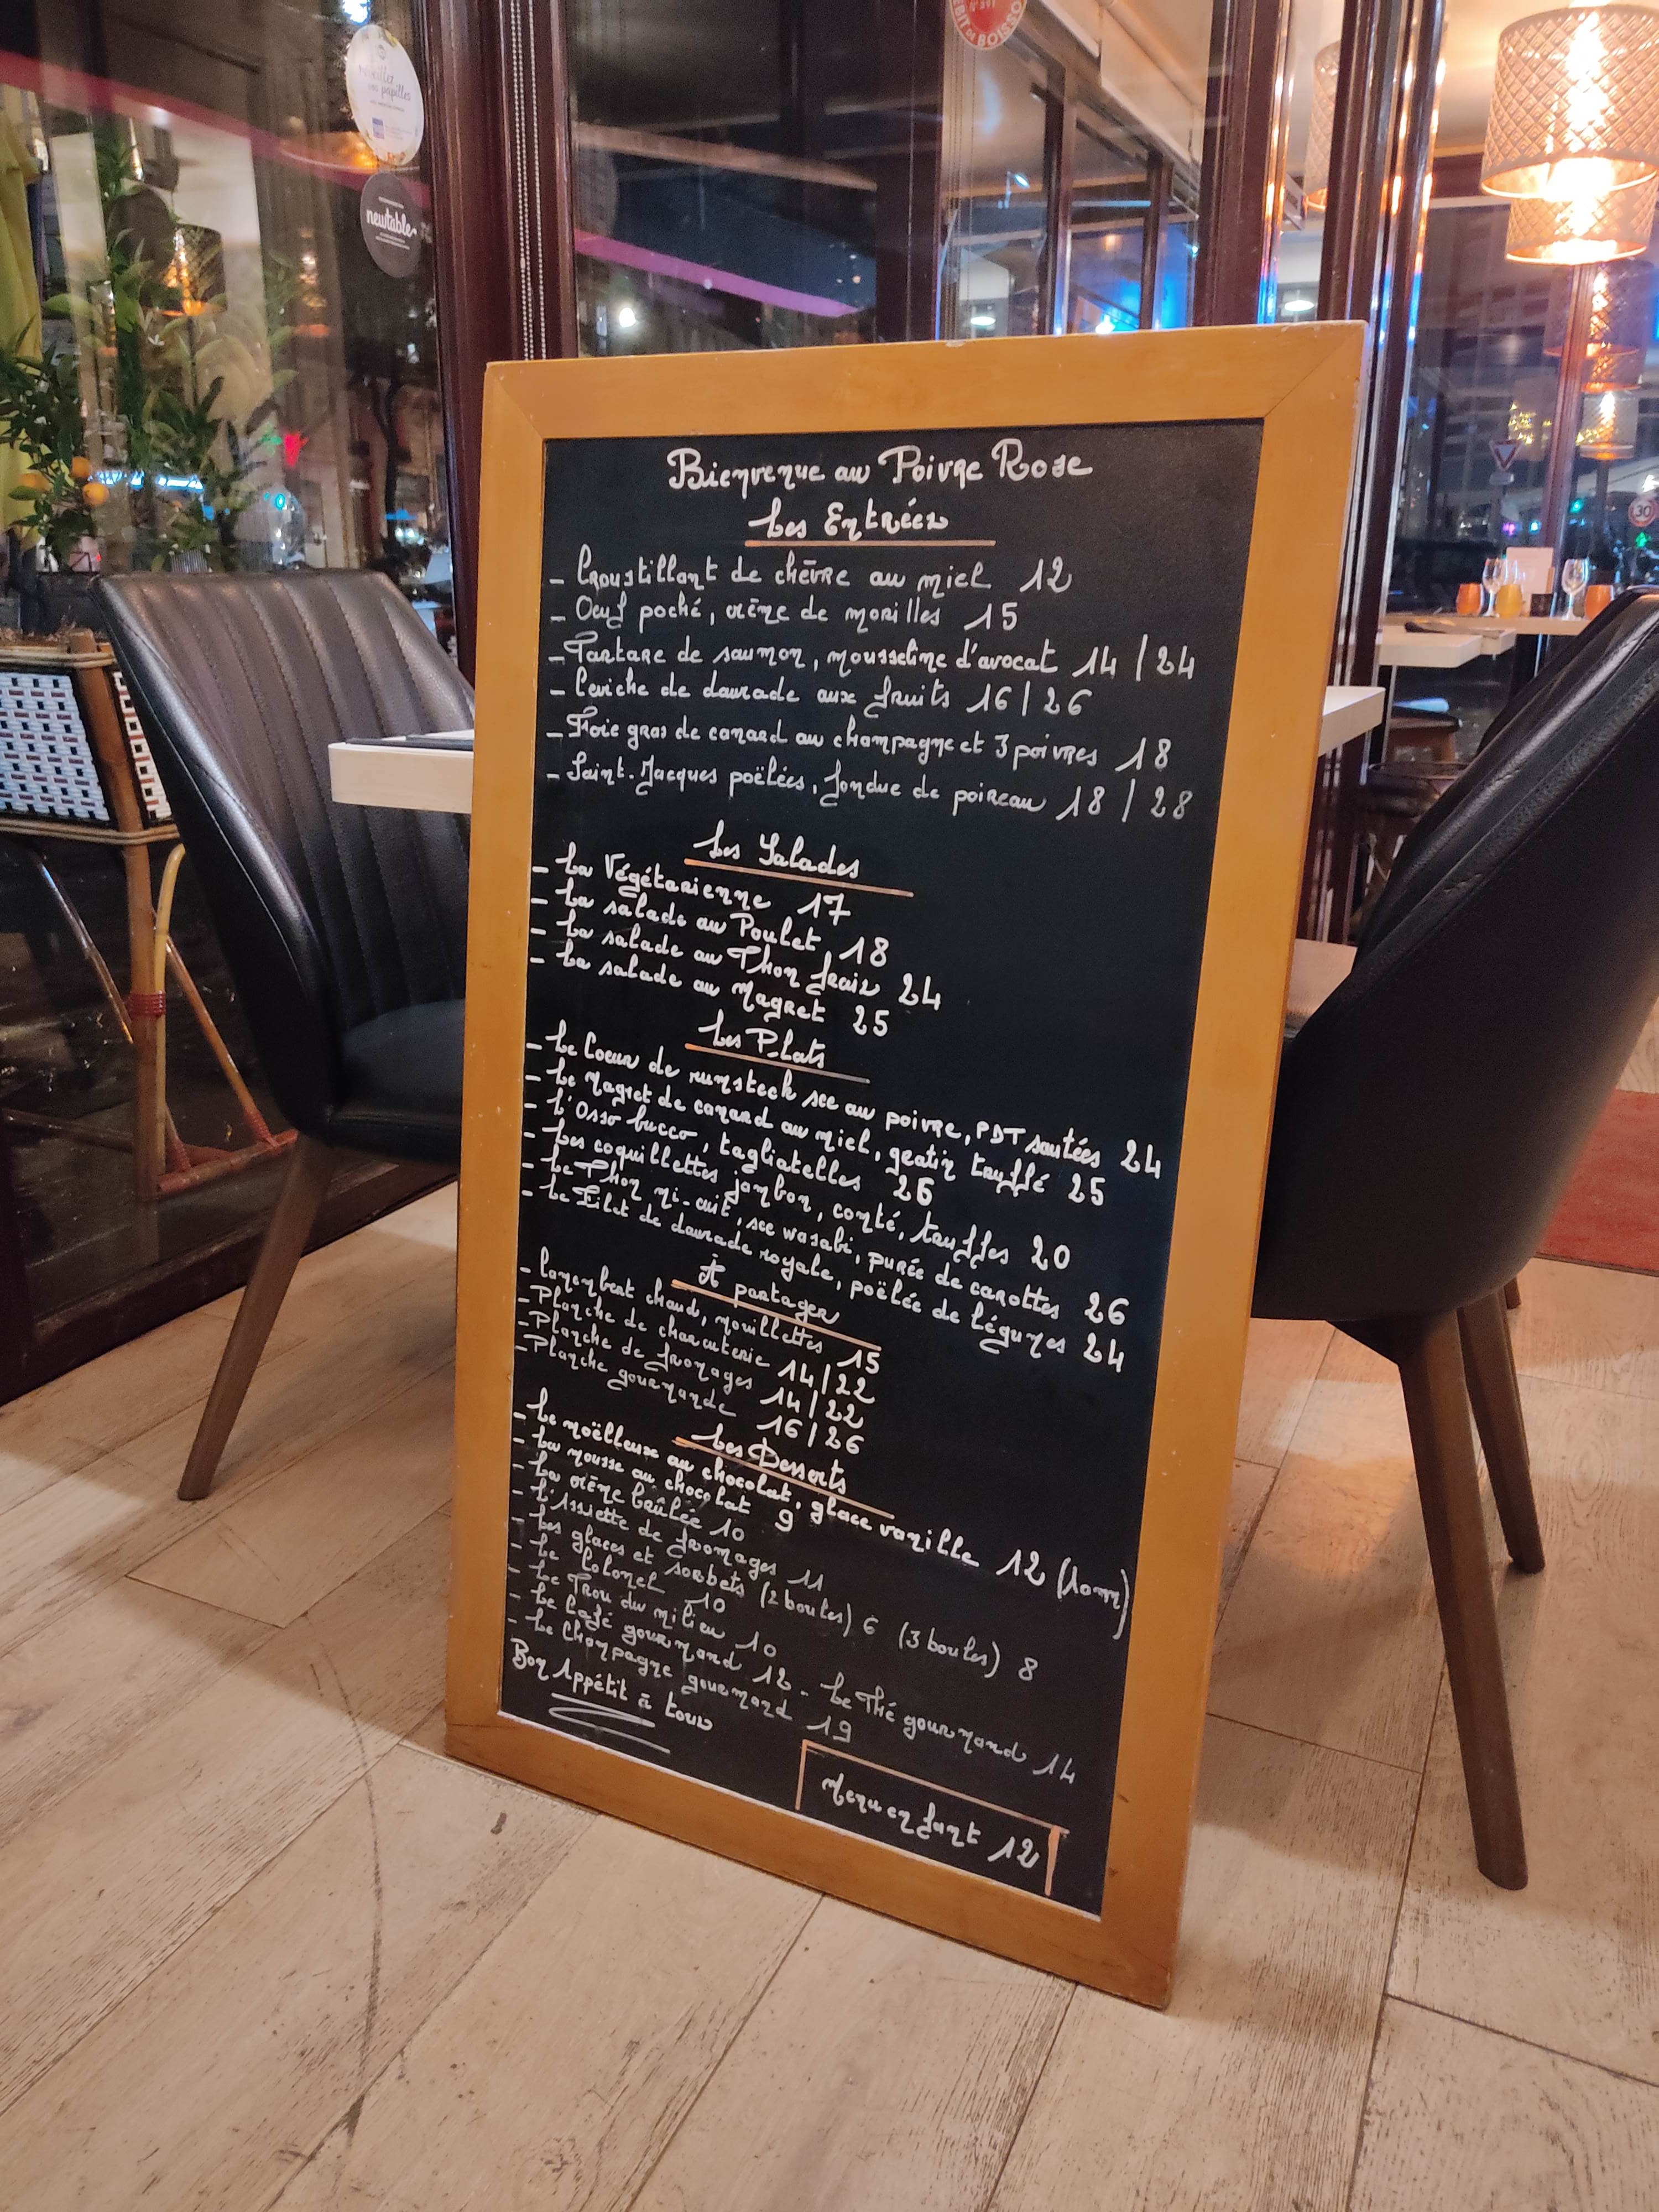 Bienvenue au Poivre Rose
Les Entrées
- Croustillant de chèvre au miel 12
- Oeuf poché, crème de morilles 15
- Tartare de saumon, mousseline d'avocat 14 / 24
- Ceviche de daurade aux fruits 16 / 26
- Foie gras de canard au champagne et 3 poivres 18
- Saint-Jacques poëlées, fondue de poireau 18 / 28
Les Salades
- La Végétarienne 17
- La salade au Poulet 18
- La salade au Thon frais 24
- La salade au Magret 25
Les Plats
- Le Coeur de rumsteck sce au poivre, PDT sautées 24
- Le Magret de canard au miel, gratin truffé 25
- L'Osso bucco, tagliatelles 26
- Les coquillettes jambon, comté, truffes 20
- Le Thon mi-cuit, sce wasabi, purée de carottes 26
- Le Filet de daurade royale, poëlée de légumes 24
À partager
- Camembert chaud, mouillettes 15
- Planche de charcuterie 14/22
- Planche de fromages 14/22
- Planche gourmande 16/26
Les Desserts
- Le moëlleux au chocolat, glace vanille 12 (10mn)
- La mousse au chocolat 9
- La crème brûlée 10
- L'Assiette de fromages 11
- Les glaces et sorbets (2 boules) 6 (3 boules) 8
- Le Colonel 10
- Le Trou du milieu 10
- Le Café gourmand 12 - Le Thé gourmand 14
- Le Champagne gourmand 19
Bon Appétit à tous
Menu enfant 12
newtable
papilles
30